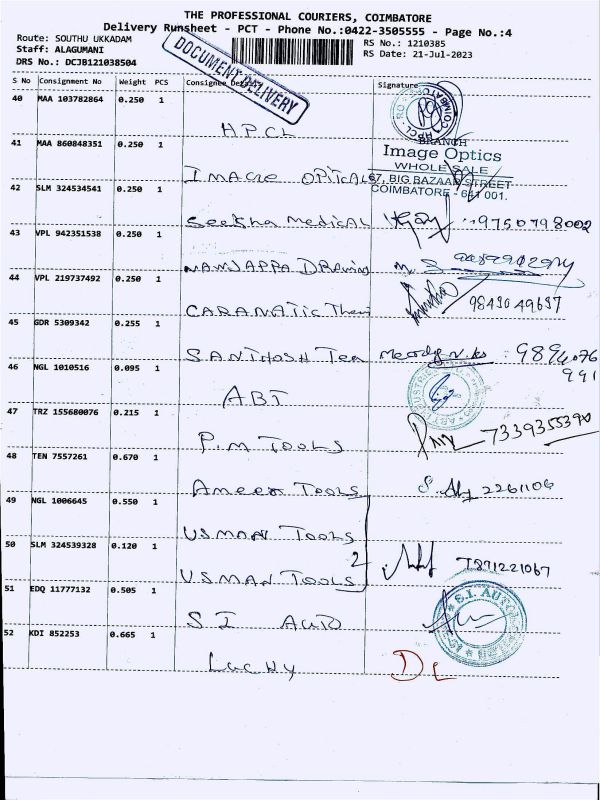 THE PROFESSIONAL COURIERS, COIMBATORE
Delivery Runsheet - PCT - Phone No.:0422-3505555 - Page No.:4
Route: SOUTHU UKKADAM
RS No.: 1210385
Staff: ALAGUMANI
RS Date: 21-Jul-2023
DRS No.: DCJB121038504
DOCUMENT DELIVERY
S No Consignment No Weight PCS Consignee Details Signature
40 MAA 103782864 0.250 1
HPCL
41 MAA 860848351 0.250 1
BRANCH
Image Optics
WHOLE SALE
67, BIG BAZAAR STREET
COIMBATORE - 641 001.
IMAGE OPITCAL
42 SLM 324534541 0.250 1
Seeksha medical 9750798002
43 VPL 942351538 0.250 1
NANJAPPA
44 VPL 219737492 0.250 1
CARANATIC 9843049637
45 GDR 5309342 0.255 1
SANTHOSH Tea
46 NGL 1010516 0.095 1
ABT
47 TRZ 155680076 0.215 1
P.M TOOLS 7339355390
48 TEN 7557261 0.670 1
Ameer TOOLS 2261106
49 NGL 1006645 0.550 1
USMAN TOOLS
50 SLM 324539328 0.120 1
2
USMAN TOOLS 7871221067
51 EDQ 11777132 0.505 1
S.I. AUTO
S I Auto
52 KDI 852253 0.665 1
Lucky